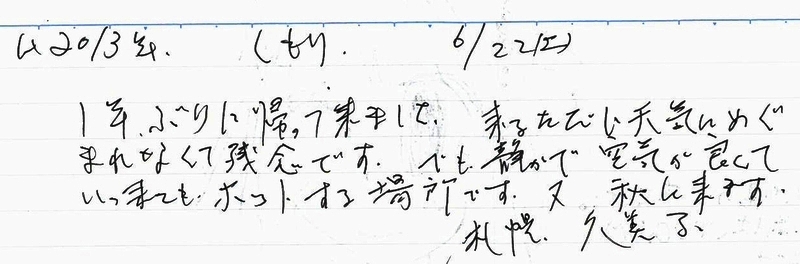 2013年. くもり. 6/22(土)
1年ぶりに帰って来ました. 来るたびに天気にめぐ
まれなくて残念です. でも静かで空気が良くて
いつ来てもホットする場所です. 又 秋に来ます.
札幌. 久美子.